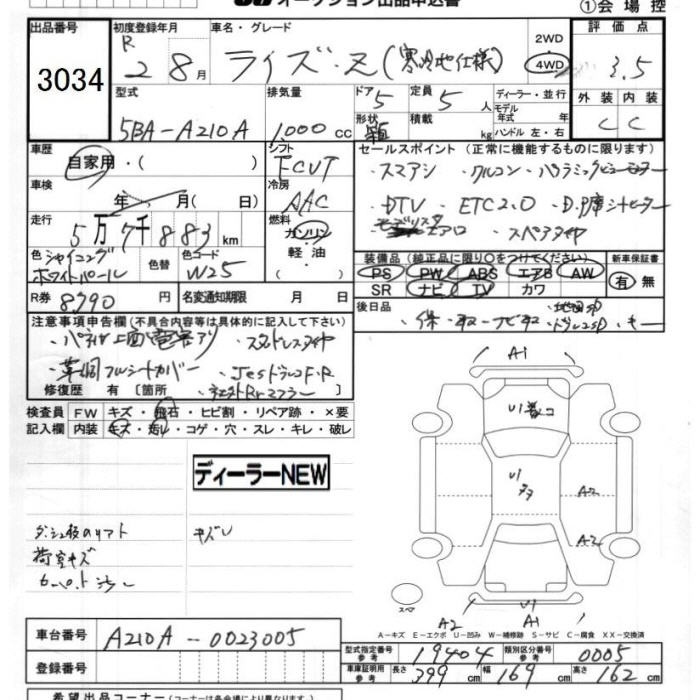 オークション出品申込書
①会場控
出品番号 初度登録年月 車名・グレード 2WD 評価点
3034 R 2 8月 ライズ・Z(寒冷地仕様) 4WD 3.5
型式 排気量 ドア 5 定員 5人 ディーラー・並行 外装 内装
5BA-A210A 1,000cc 形状 積載 kg モデル年式 年式 ハンドル 左・右 C C
車歴 シフト セールスポイント(正常に機能するものに限ります)
自家用・( ) FCVT ・スマアシ ・クルコン
車検 年 月( 日) 冷房 AAC ・DTV ・ETC2.0
走行 5万7千883km 燃料 ガソリン・軽油 エアロ ・スペアタイヤ
色 シャイニングホワイトパール 色替 色コード W25 装備品(純正品に限り○をつけてください) 新車保証書
PS PW ABS エアB AW 有 無
SR ナビ TV カワ
R券 8,790円 名変通知期限 月 日 後日品
・保・取・ナビ取 ・キー
注意事項申告欄(不具合内容等は具体的に記入して下さい)
・スタッドレスタイヤ
フルシートカバー
修復歴 有[箇所
検査員 FW キズ・飛石・ヒビ割・リペア跡・×要
記入欄 内装 キズ・汚レ・コゲ・穴・スレ・キレ・破レ
A1
U1
ディーラーNEW
U1
A2
A2
キズU
荷室キズ
スペア
U1
A2 A1
A-キズ E-エクボ U-凹み W-補修跡 S-サビ C-腐食 XX-交換済
車台番号 A210A-0023005
型式指定番号 参考 19404 類別区分番号 参考 0005
登録番号 車庫証明用 参考 長さ 399cm 幅 169cm 高さ 162cm
希望出品コーナー(コーナーによっては